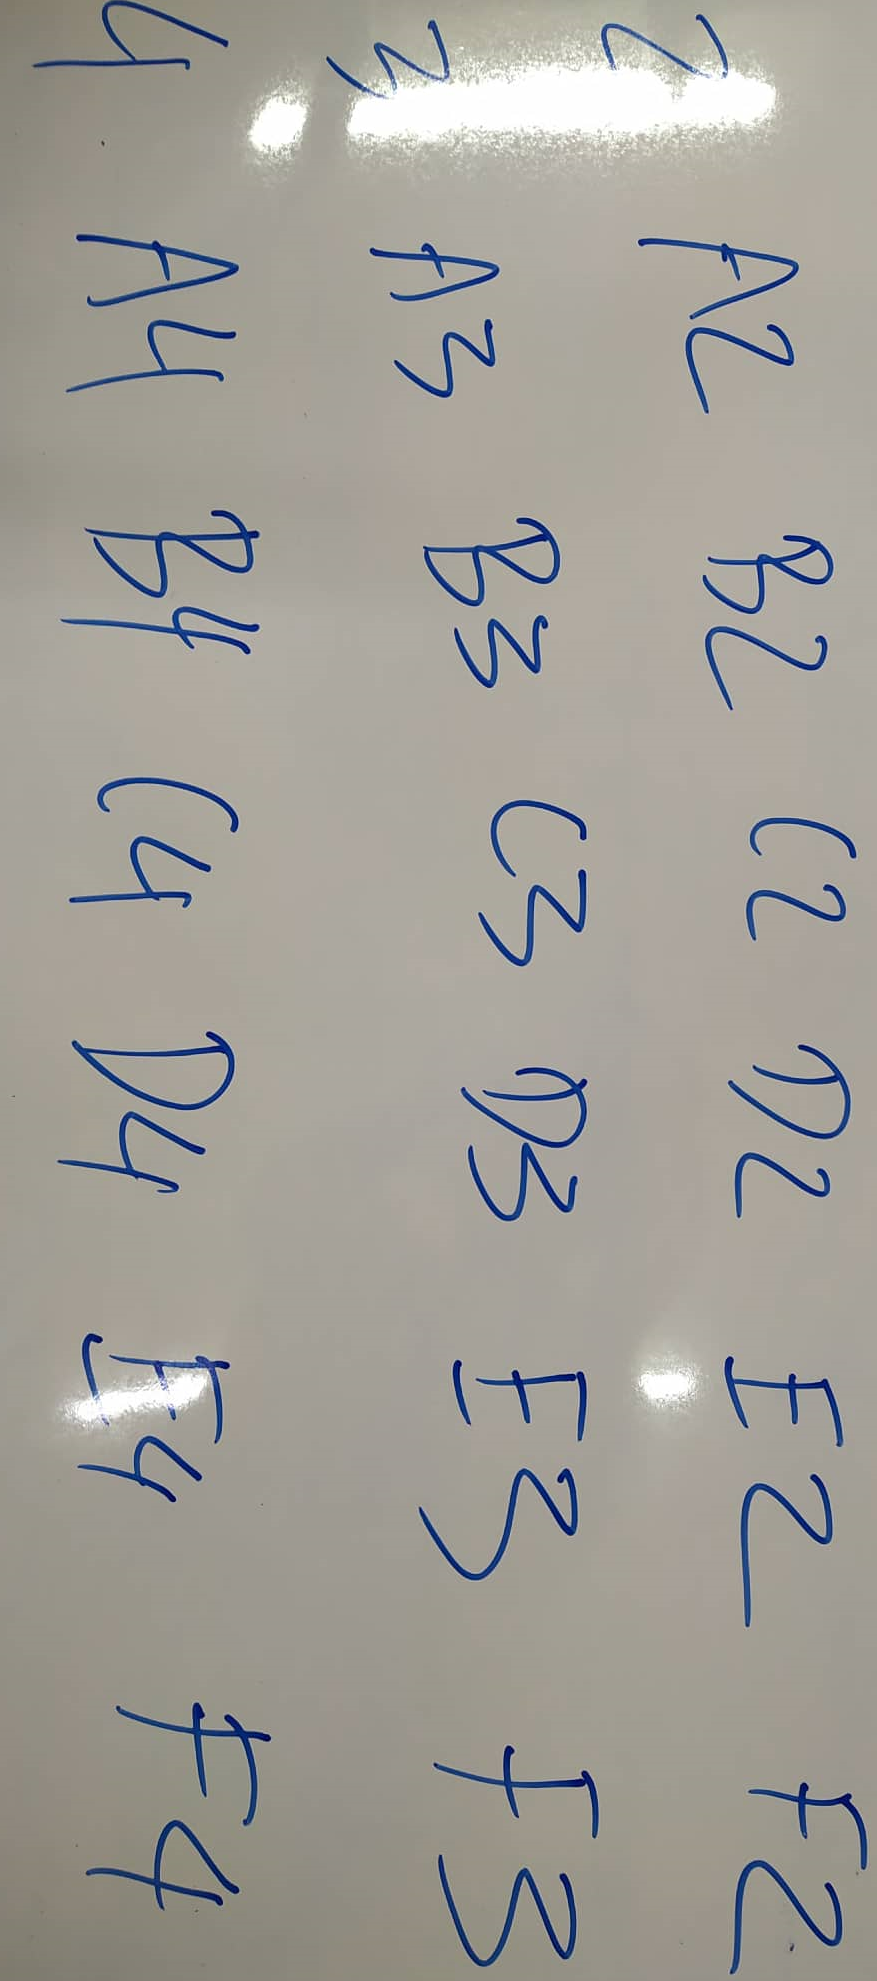 2 A2 B2 C2 D2 E2 F2
3 A3 B3 C3 D3 E3 F3
4 A4 B4 C4 D4 E4 F4